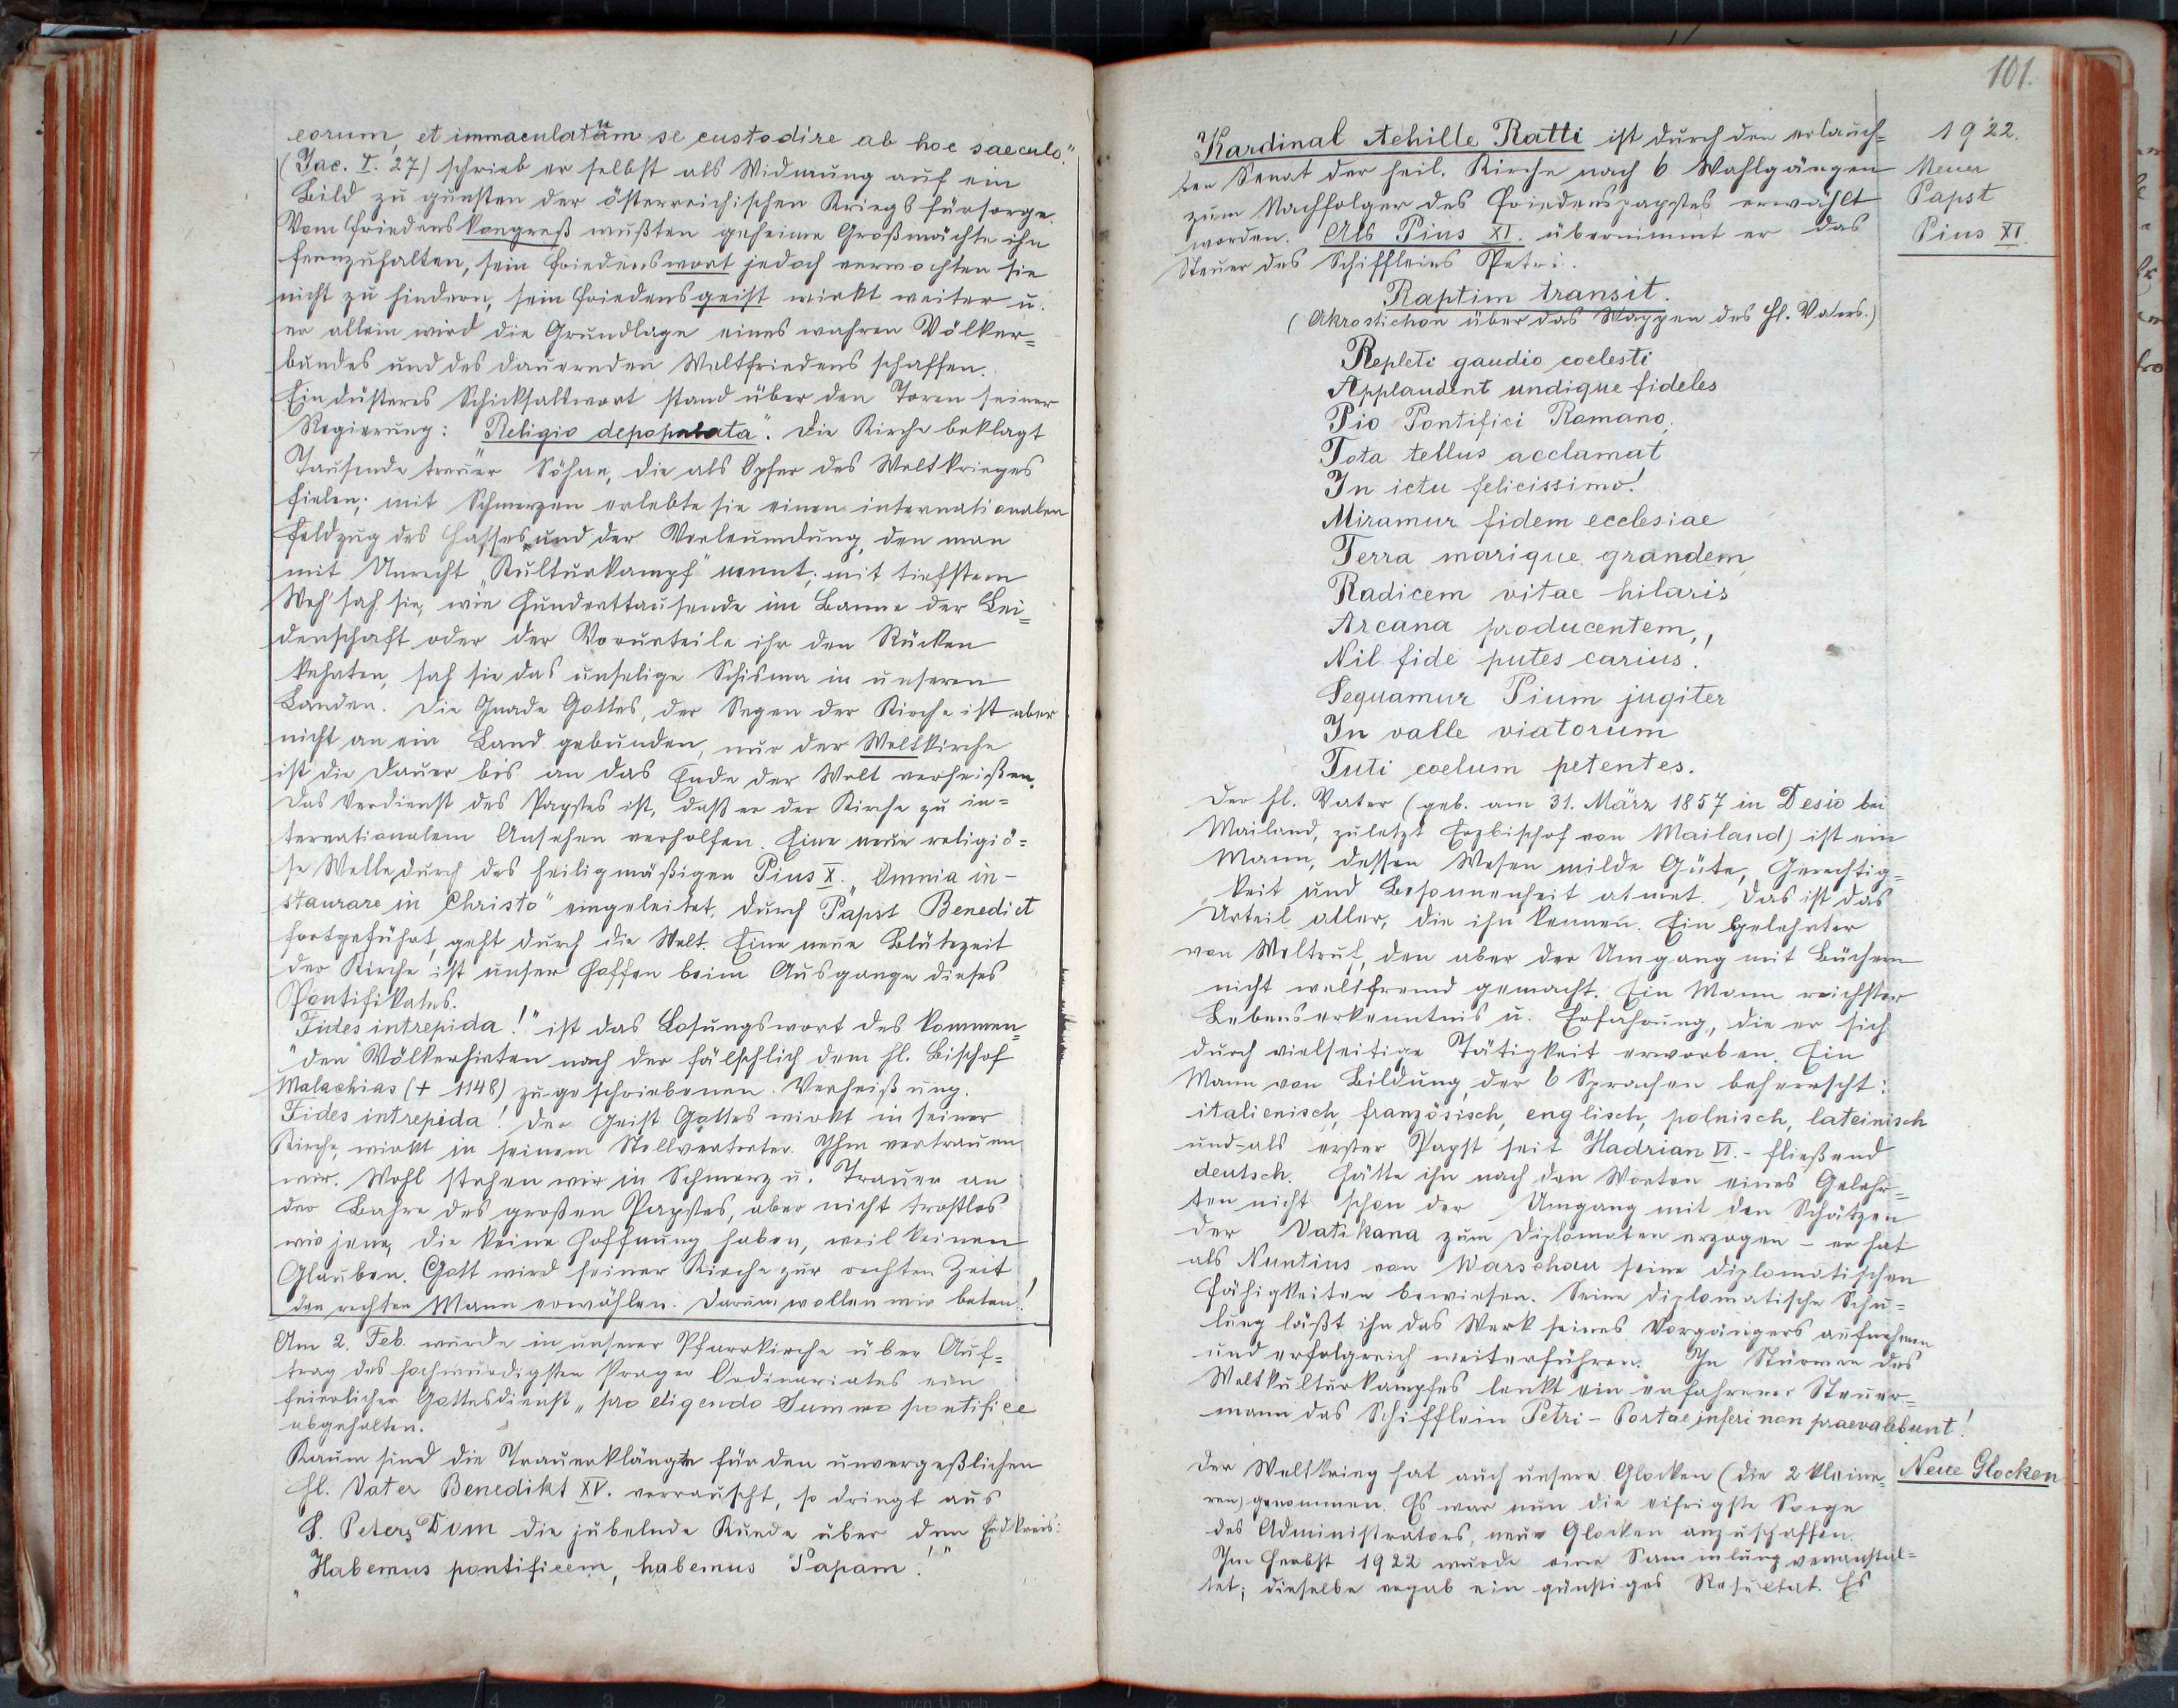 eorum, et immaculatum se custodire ab hoc saeculo."
(Jac. I. 27) schrieb er selbst als Widmung auf ein
Bild zu gunsten der österreichischen Kriegsfürsorge.
Vom Friedenskongreß wußten geheime Großmächte ihn
fernzuhalten, sein Friedenswort jedoch vermochten sie
nicht zu hindern, sein Friedensgeist wirkt weiter u.
er allein wird die Grundlage eines wahren Völker=
bundes und des dauernden Weltfriedens schaffen.
Ein düsteres Schicksalswort stand über den Toren seiner
Regierung: "Religio depopulata". Die Kirche beklagt
Tausende treuer Söhne, die als Opfer des Weltkrieges
fielen; mit Schmerzen erlebte sie einen internationalen
Feldzug des Hasses und der Verleumdung, den man
mit Unrecht "Kulturkampf" nennt; mit tiefstem
Weh' sah sie, wie Hunderttausende im Banne der Lei=
denschaft oder der Vorurteile ihr den Rücken
kehrten, sah sie das unselige Schisma in unseren
Landen. Die Gnade Gottes, der Segen der Kirche ist aber
nicht an ein Land gebunden, nur der Weltkirche
ist die Dauer bis an das Ende der Welt verheißen.
Das Verdienst des Papstes ist, daß er der Kirche zu in=
ternationalem Ansehen verholfen. Eine neue religiö=
se Welle, durch des heiligmäßigen Pius X. "Omnia in-
staurare in Christo" eingeleitet, durch Papst Benedict
fortgeführt, geht durch die Welt. Eine neue Blütezeit
der Kirche ist unser Hoffen beim Ausgange dieses
Pontifikates.
"Fides intrepida!" ist das Losungswort des kommen=
den Völkerhirten nach der fälschlich dem hl. Bischof
Malachias († 1148) zugeschriebenen Verheißung.
Fides intrepida! Der Geist Gottes wirkt in seiner
Kirche, wirkt in seinem Stellvertreter. Ihm vertrauen
wir. Wohl stehen wir in Schmerz u. Trauer an
der Bahre des großen Papstes, aber nicht trostlos
wie jene, die keine Hoffnung haben, weil keinen
Glauben. Gott wird seiner Kirche zur rechten Zeit
den rechten Mann erwählen. Darum wollen wir beten!
Am 2. Feb. wurde in unserer Pfarrkirche über Auf=
trag des hochwürdigsten Prager Ordinariates ein
feierlicher Gottesdienst "pro eligendo Summo pontifice
abgehalten.
Kaum sind die Trauerklänge für den unvergeßlichen
hl. Vater Benedikt XV. verrauscht, so dringt aus
S. Peters Dom die jubelnde Kunde über den Erdkreis:
"Habemus pontificem, habemus Papam!"
101.
Kardinal Achille Ratti ist durch den erlauch=
ten Senat der heil. Kirche nach 6 Wahlgängen
zum Nachfolger des Friedenspapstes erwählt
worden. Als Pius XI. übernimmt er das
Steuer des Schiffleins Petri.
1922.
Neuer
Papst
Pius XI.
Raptim transit.
(Akrostichon über das Wappen des hl. Vaters.)
Repleti gaudio coelesti
Applaudent undique fideles
Pio Pontifici Romano,
Tota tellus acclamat
In ictu felicissimo!
Miramur fidem ecclesiae
Terra marique grandem,
Radicem vitae hilaris
Arcana producentem,
Nil fide putes carius!
Sequamur Pium jugiter
In valle viatorum
Tuti coelum petentes.
Der hl. Vater (geb. am 31. März 1857 in Desio bei
Mailand, zuletzt Erzbischof von Mailand) ist ein
Mann, dessen Wesen milde Güte, Gerechtig=
keit und Besonnenheit atmet. Das ist das
Urteil aller, die ihn kennen. Ein Gelehrter
von Weltruf, den aber der Umgang mit Büchern
nicht weltfremd gemacht. Ein Mann reichster
Lebenserkenntnis u. Erfahrung, die er sich
durch vielseitige Tätigkeit erworben. Ein
Mann von Bildung, der 6 Sprachen beherrscht:
italienisch, französisch, englisch, polnisch, lateinisch
und - als erster Papst seit Hadrian VI. - fließend
deutsch. Hätte ihn nach den Worten eines Gelehr=
ten nicht schon der Umgang mit den Schätzen
der Vatikana zum Diplomaten erzogen - er hat
als Nuntius von Warschau seine diplomatischen
Fähigkeiten bewiesen. Seine diplomatische Schu=
lung läßt ihn das Werk seines Vorgängers aufnehmen
und erfolgreich weiterführen. In Stürmen des
Weltkulturkampfes lenkt ein erfahrener Steuer=
mann das Schifflein Petri - Portae inferi non praevalebunt!
Der Weltkrieg hat auch unsere Glocken (die 2 kleine=
ren) genommen. Es war nun die eifrigste Sorge
des Administrators, neue Glocken anzuschaffen.
Im Herbst 1922 wurde eine Sammlung veranstal=
tet; dieselbe ergab ein günstiges Resultat. Es
Neue Glocken